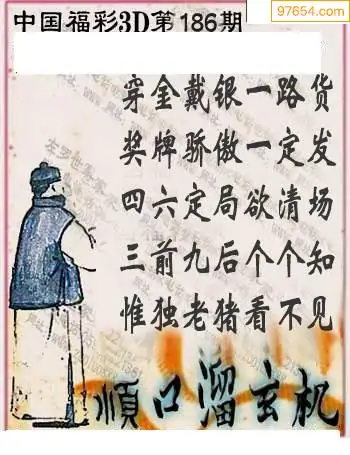 97654.com
中国福彩3D第186期
穿金戴银一路货
奖牌骄傲一定发
四六定局欲清场
三前九后个个知
惟独老猪看不见
顺口溜玄机